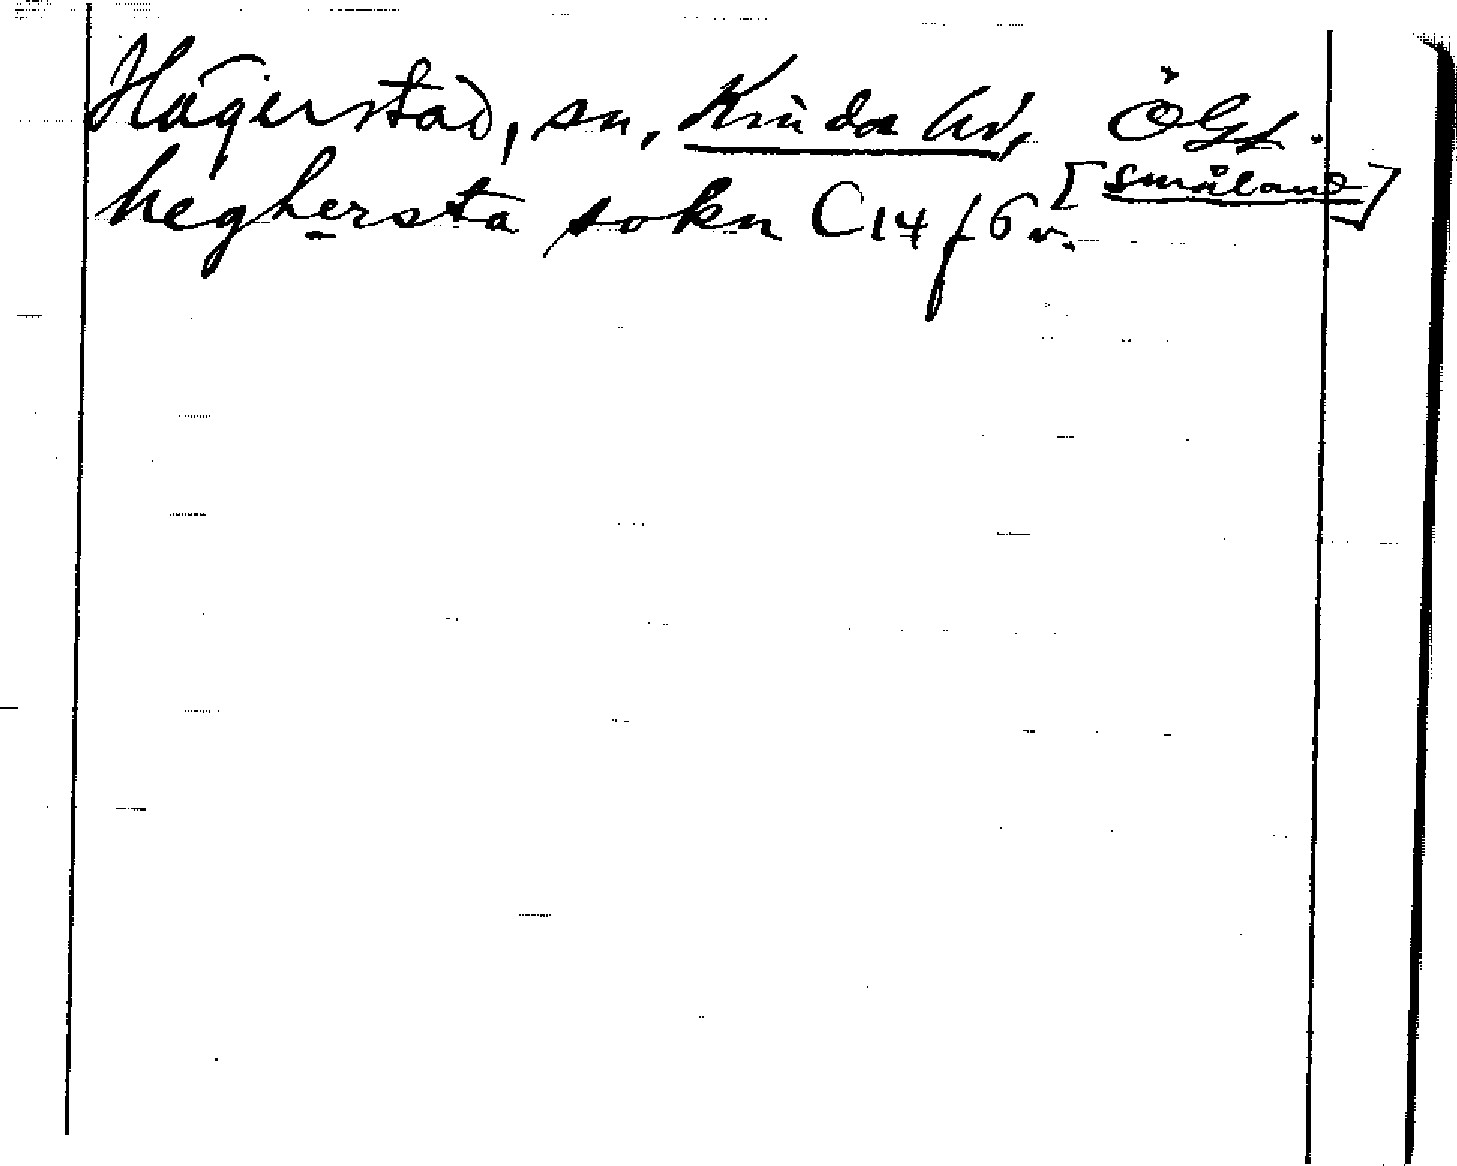 Hägerstad, sn, Kinda hd, ÖGtl.
heghersta sokn C14 f 6 v. [Småland]